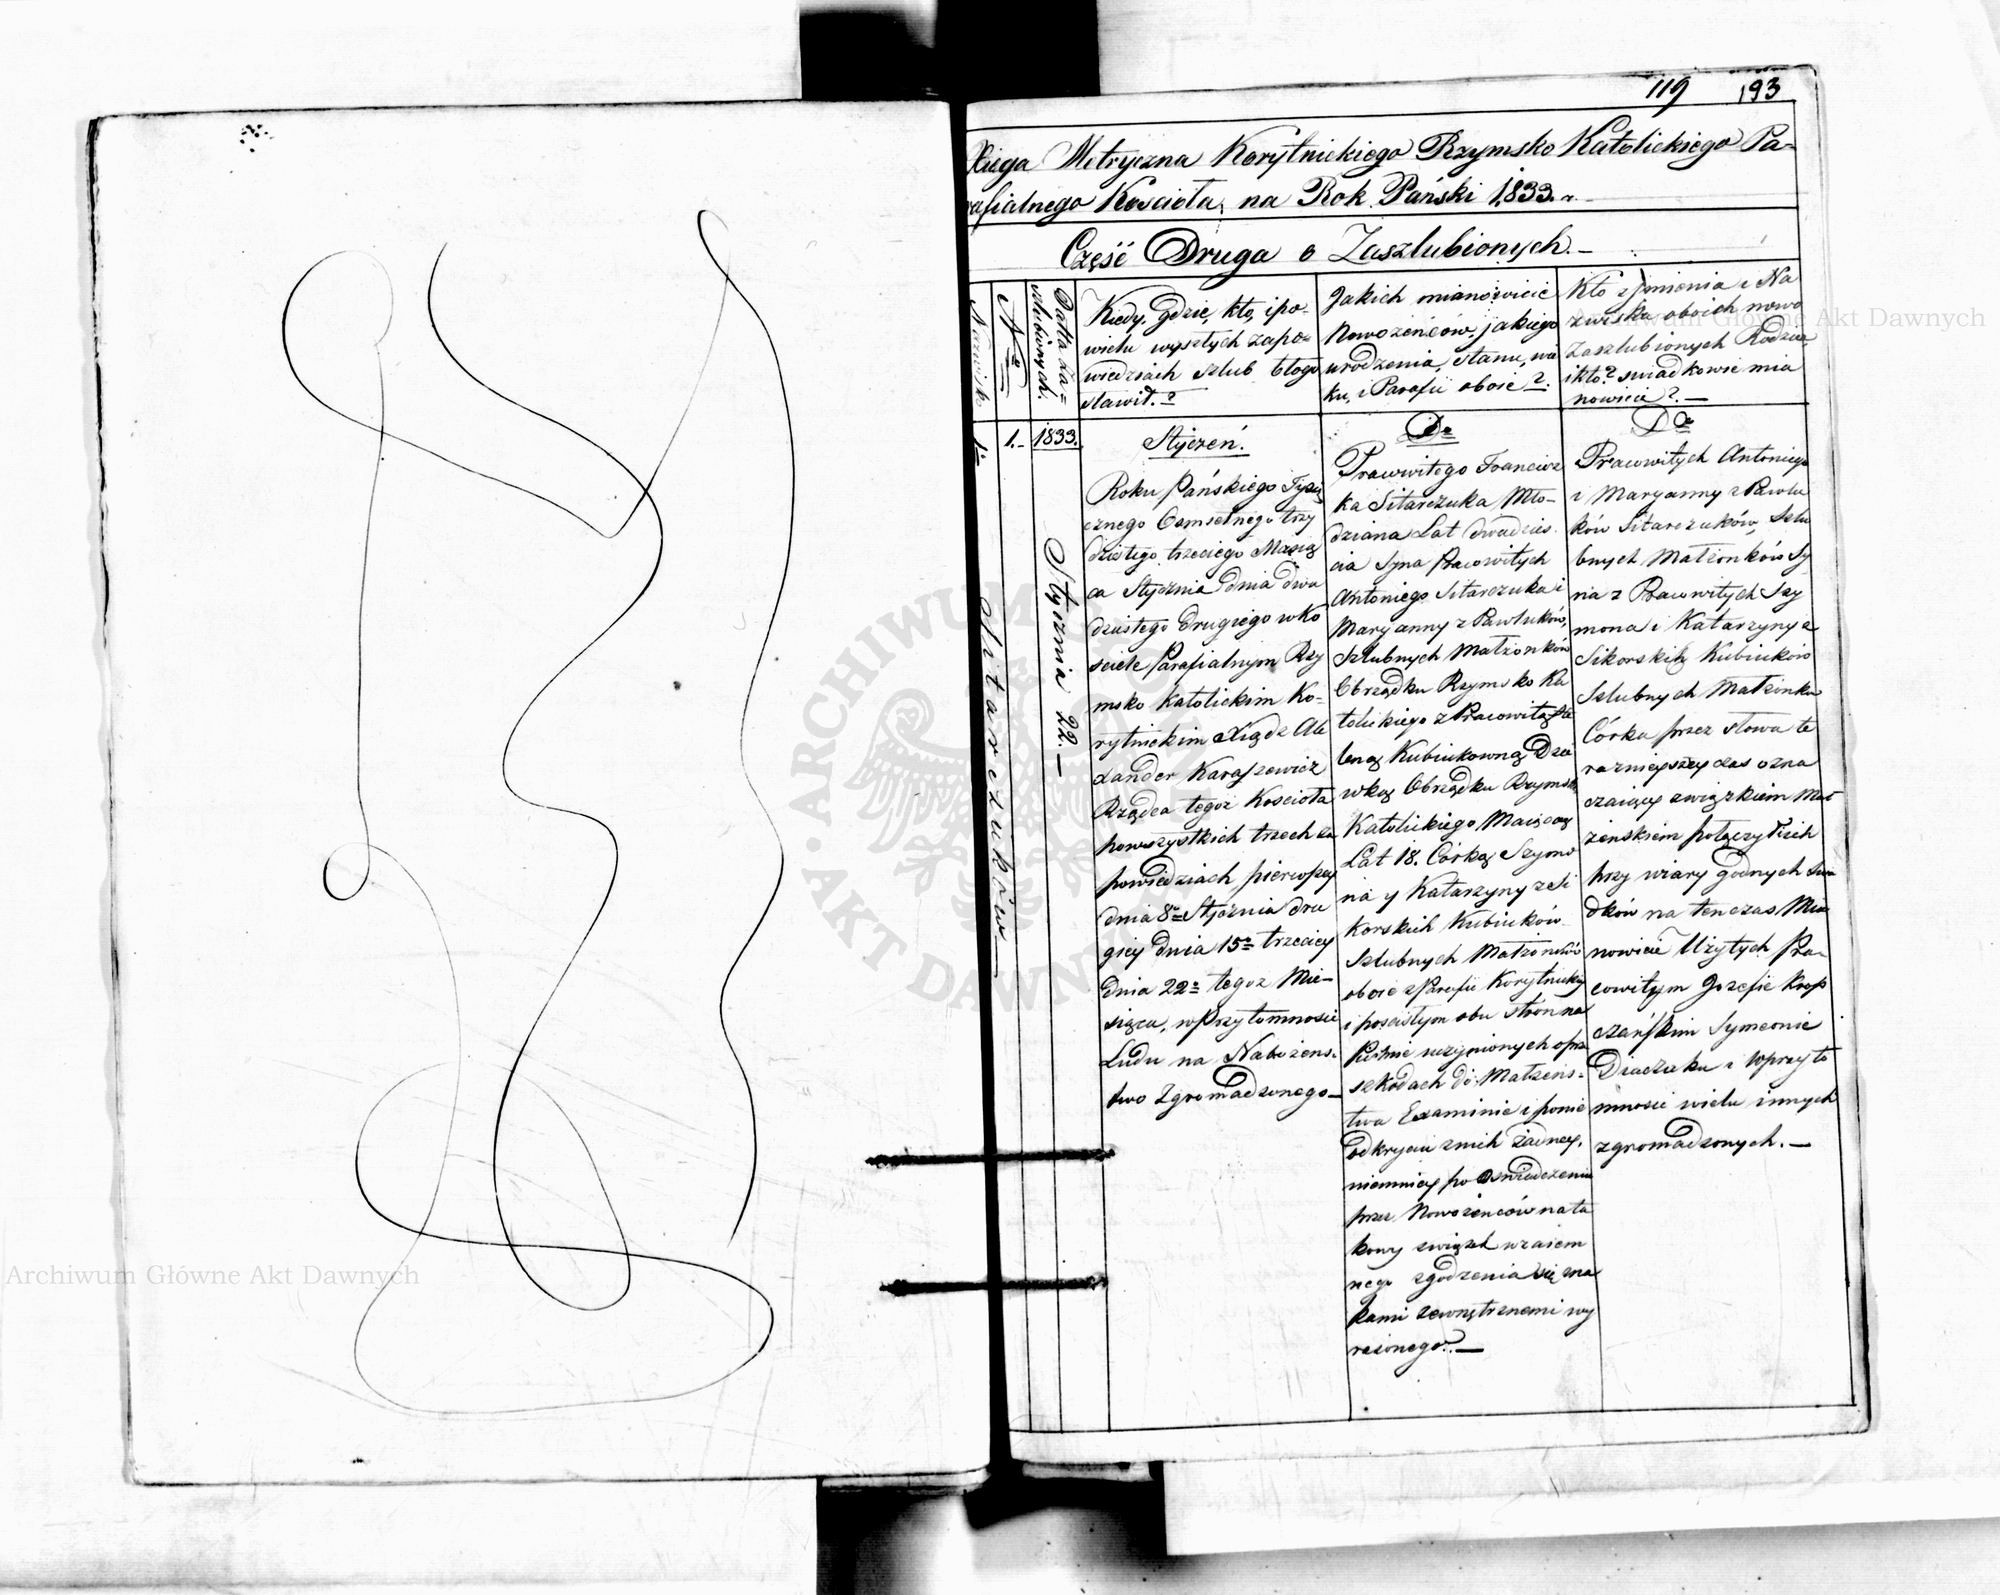 119 193
Xięga Metryczna Korytnickiego Rzymsko Katolickiego Pa-
rafialnego Kościoła, na Rok Pański 1833.
Część Druga o Zaszlubionych.—
Nazwisko
N°
Datta Za=
szlubionych.
Kiedy, gdzie, kto, i po-
wielu wyszłych zapo-
wiedziach szlub błogo
sławił.?
Jakich mianowicie
Nowożeńców, jakiego
urodzenia, stanu, wie
ku, i Parafii oboie?.
Kto z Jmienia i Na
zwiska oboich nowo
Zaszlubionych Rodzice
i kto? swiadkowie mia
nowicie?.—
1.-
1833.
Stycznia 22.—
Sitarczuków—
Styczeń.
Roku Pańskiego Tysią
cznego Osmsetnego trzy
dziestego trzeciego Miesią
ca Stycznia dnia dwu
dziestego drugiego w Ko
sciele Parafialnym Rzy
msko Katolickim Ko-
rytnickim Xiądz Ale
xander Karaszewicz
Rządca tegoż Kościoła
po wszystkich trzech za
powiedziach pierwszey
dnia 8° Stycznia dru
giey dnia 15° trzeciey
dnia 22° tegoż Mie-
siąca, w przytomnosci
Ludu na Nabożens-
two Zgromadzonego—
D°
Pracowitego Francisz
ka Sitarczuka Mło-
dziana Lat dwadzies
cia Syna Pracowitych
Antoniego Sitarczuka i
Maryanny z Pawluków,
Szlubnych Małżonków
Obrządku Rzymsko Ka
tolickiego z Pracowitą He
leną Kubiukowną Dzie
wką Obrządku Rzymsko
Katolickiego Maiącą
Lat 18. Córką Szymo
na y Katarzyny z Si
korskich Kubiuków
Szlubnych Małżonków
oboie z Parafii Korytnickiey
i po scisłym obu stron na
Pismie uczynionych o prze
szkodach do Małżens-
twa Examinie i ponie
odkryciu z nich żadney,
niemniey po oswiadczeniu
przez Nowożeńców na ta
kowy związek wzaiem
nego zgodzenia się zna
kami zewnętrznemi wy
rażonego.—
D°
Pracowitych Antoniego
i Maryanny z Pawlu
ków Sitarczuków, Szlu
bnych Małżonków Sy
na z Pracowitych Szy
mona i Katarzyny z
Sikorskich Kubiuków
Szlubnych Małżonków
Córką przez słowa te
raznieyszy czas ozna
czaiącey związkiem Mał
żenskiem połączył ich
przy wiary godnych Swia
dków na ten czas Mia
nowicie Użytych Pra-
cowitym Jozefie Krop
Symeonie
Diaczuku i w przyto
mnosci wielu innych
zgromadzonych.—
Archiwum Główne Akt Dawnych
Archiwum Główne Akt Dawnych
ARCHIWUM GŁÓWNE · AKT DAWNYCH